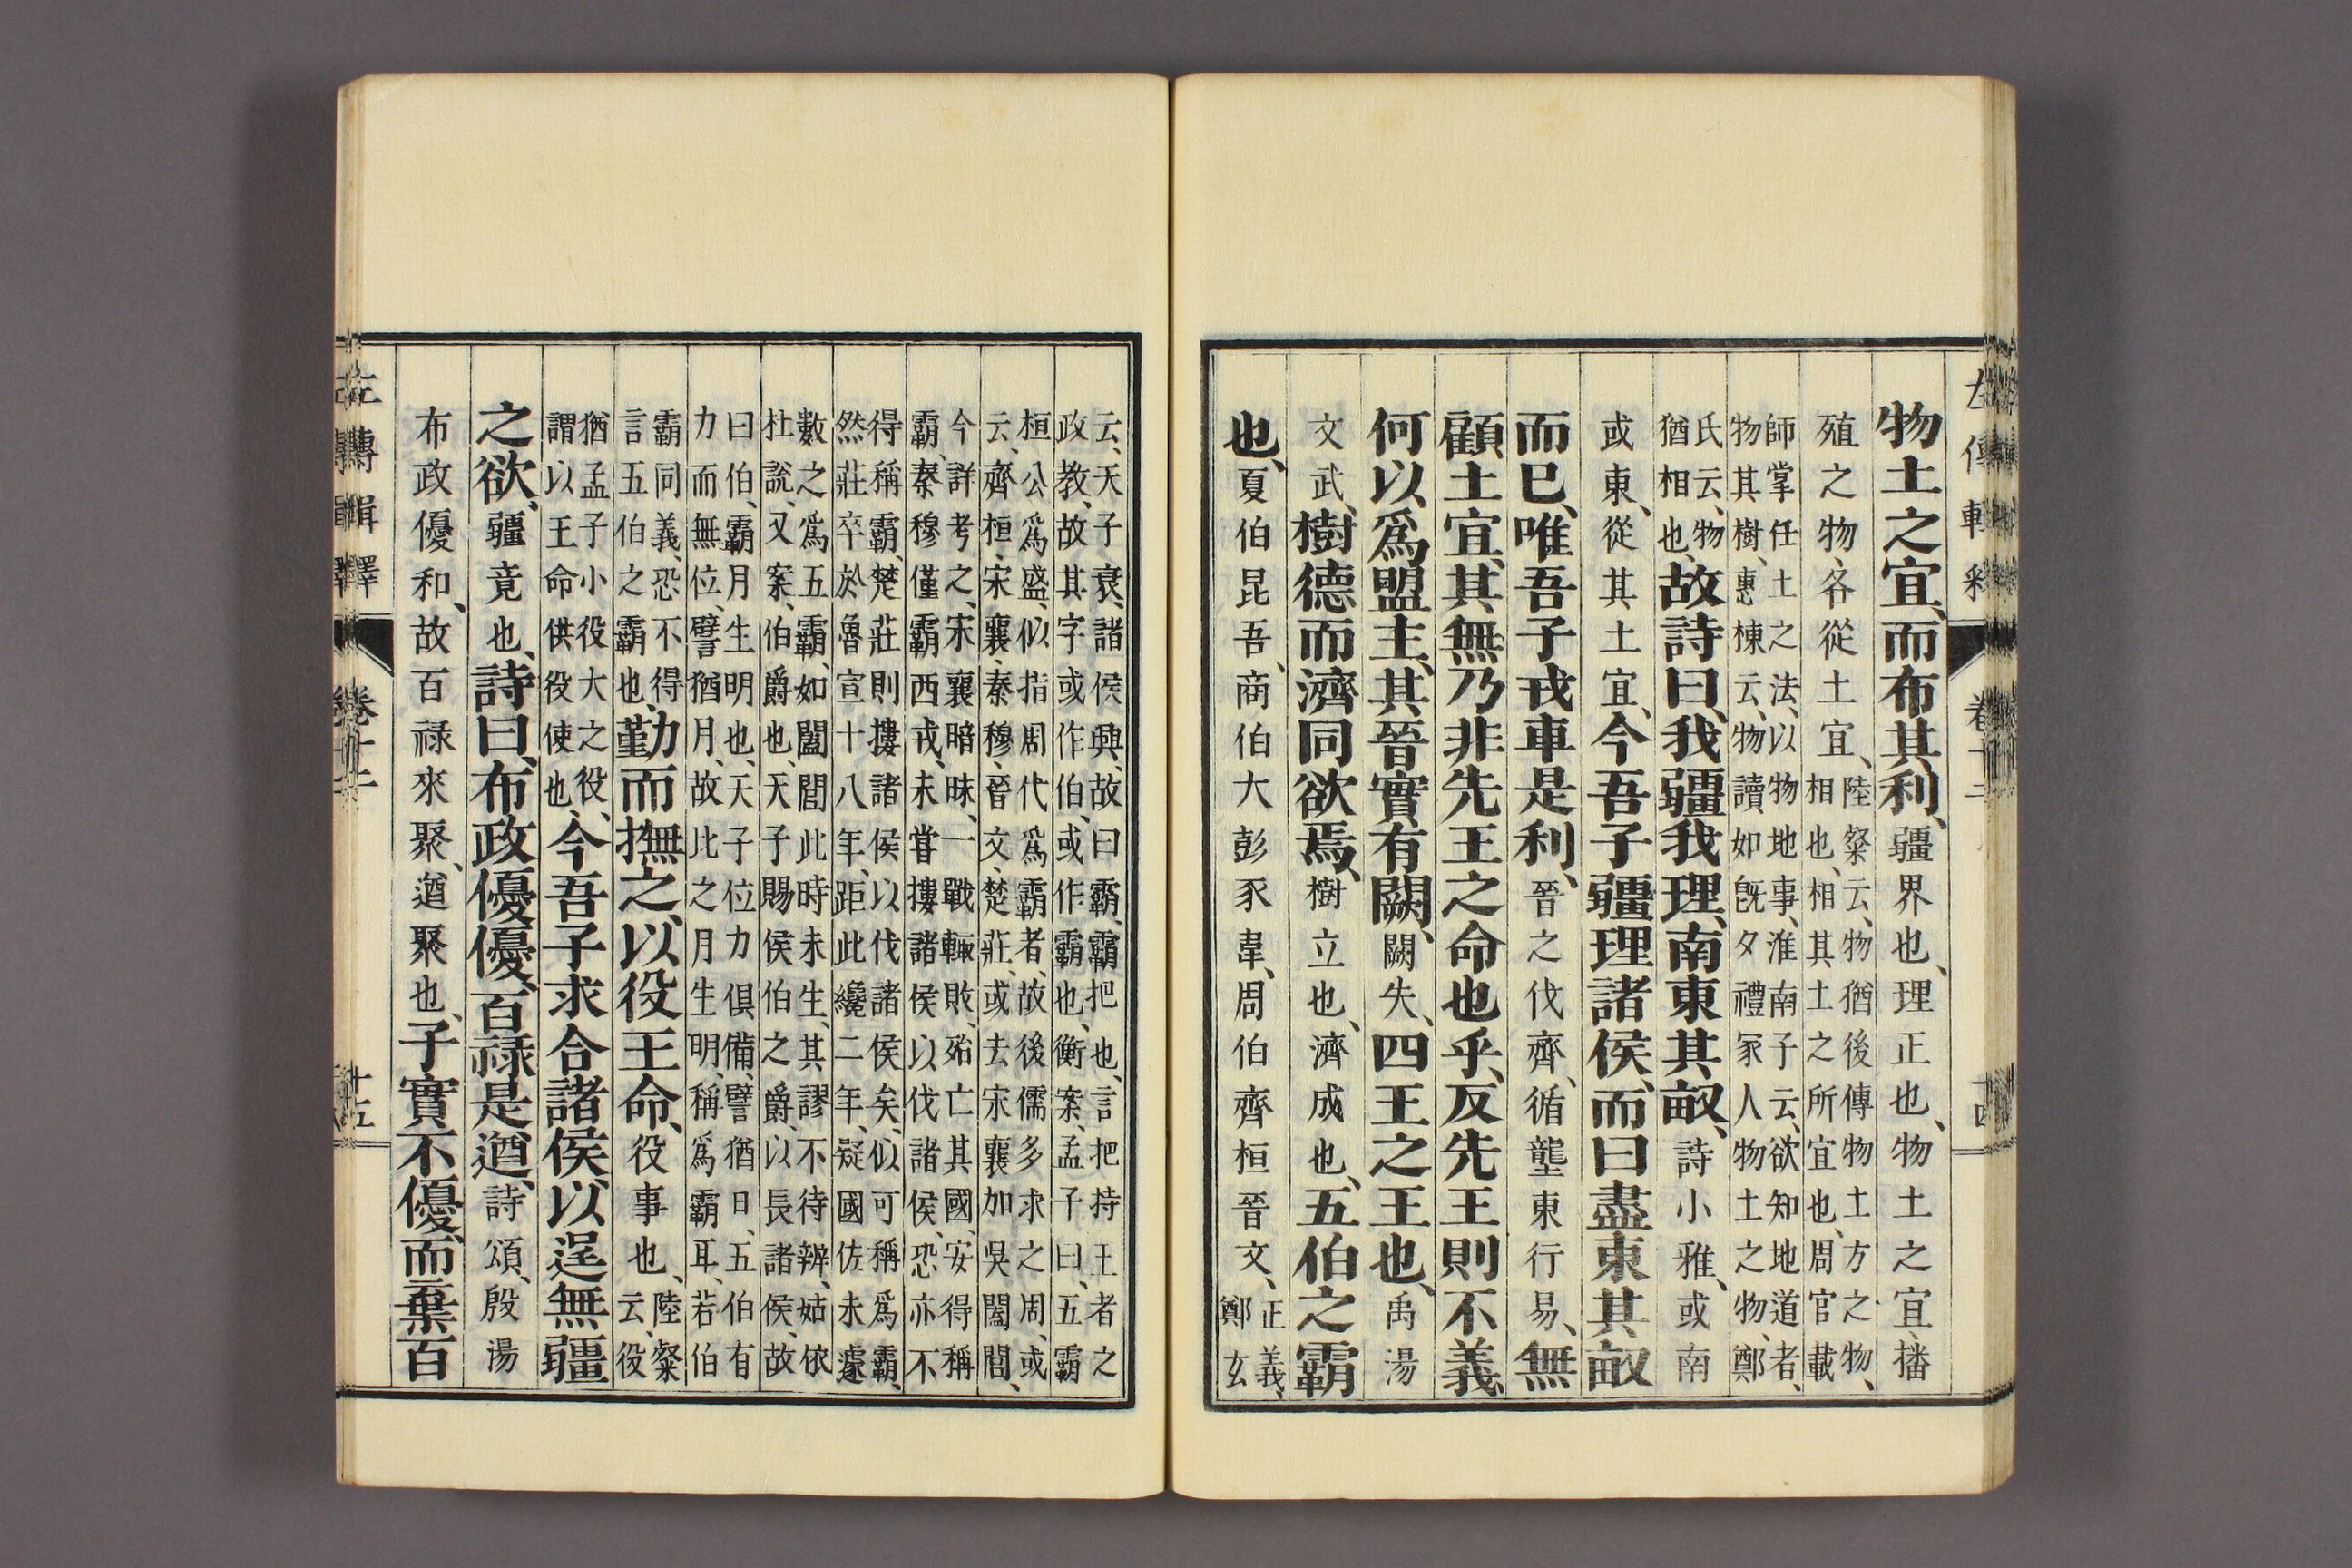 物土之宜、而布其利、疆界也、理正也、物土之宜、播
殖之物、各從土宜、陸粲云、物猶後傳物土方之物、
相也、相其土之所宜也、周官載
師掌任土之法、以物地事、淮南子云、欲知地道者、
物其樹、惠棟云、物讀如旣夕禮冢人物土之物、鄭
氏云、物
猶相也、故詩曰、我疆我理、南東其畝、詩小雅、或南
或東、從其土宜、今吾子疆理諸侯、而曰盡東其畝
而已、唯吾子戎車是利、晉之伐齊、循壟東行易、無
顧土宜、其無乃非先王之命也乎、反先王則不義、
何以爲盟主、其晉實有闕、闕失、四王之王也、禹湯
文武、樹德而濟同欲焉、樹立也、濟成也、五伯之霸
也、夏伯昆吾、商伯大彭豕韋、周伯齊桓晉文、正義、
鄭玄
云、天子衰、諸侯興、故曰霸、霸把也、言把持王者之
政教、故其字或作伯、或作霸也、衡案、孟子曰、五霸
桓公爲盛、似指周代爲霸者、故後儒多求之周、或
云、齊桓、宋襄、秦穆、晉文、楚莊、或去宋襄加吳闔閭、
今詳考之、宋襄暗昧、一戰輒敗、殆亡其國、安得稱
霸、秦穆僅霸西戎、未嘗摟諸侯以伐諸侯、恐亦不
得稱霸、楚莊則摟諸侯以伐諸侯矣、似可稱爲霸、
然莊卒於魯宣十八年、距此纔二年、疑國佐未遽
數之爲五霸、如闔閭此時未生、其謬不待辨、姑依
杜說、又案、伯爵也、天子賜侯伯之爵、以長諸侯、故
曰伯、霸月生明也、天子位力俱備、譬猶日、五伯有
力而無位、譬猶月、故比之月生明、稱爲霸耳、若伯
霸同義、恐不得
言五伯之霸也、勤而撫之、以役王命、役事也、陸粲
云、役
猶孟子小役大之役、
謂以王命供役使也、今吾子求合諸侯、以逞無疆
之欲、疆竟也、詩曰、布政優優、百祿是遒、詩頌、殷湯
布政優和、故百祿來聚、遒聚也、子實不優、而棄百
左傳輯釋 卷十二 十五